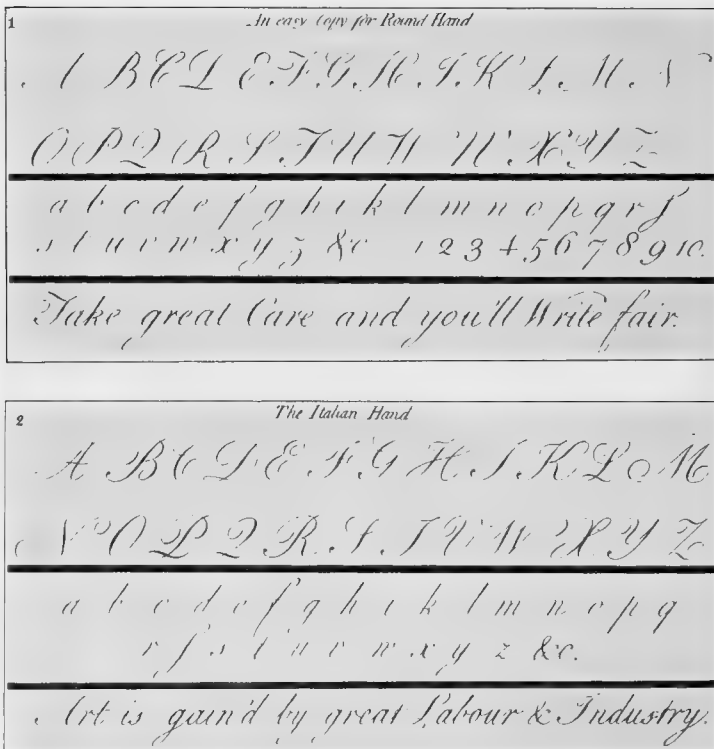 1
An easy Copy for Round Hand
A B C D E F G H I K L M N
O P Q R S T U V W X Y Z
a b c d e f g h i k l m n o p q r ſ
s t u v w x y z &c 1 2 3 4 5 6 7 8 9 10.
Take great Care and you'll Write fair.
2
The Italian Hand
A B C D E F G H I K L M
N O P Q R S T V W X Y Z
a b c d e f g h i k l m n o p q
r ſ s t u v w x y z &c.
Art is gain'd by great Labour & Industry.